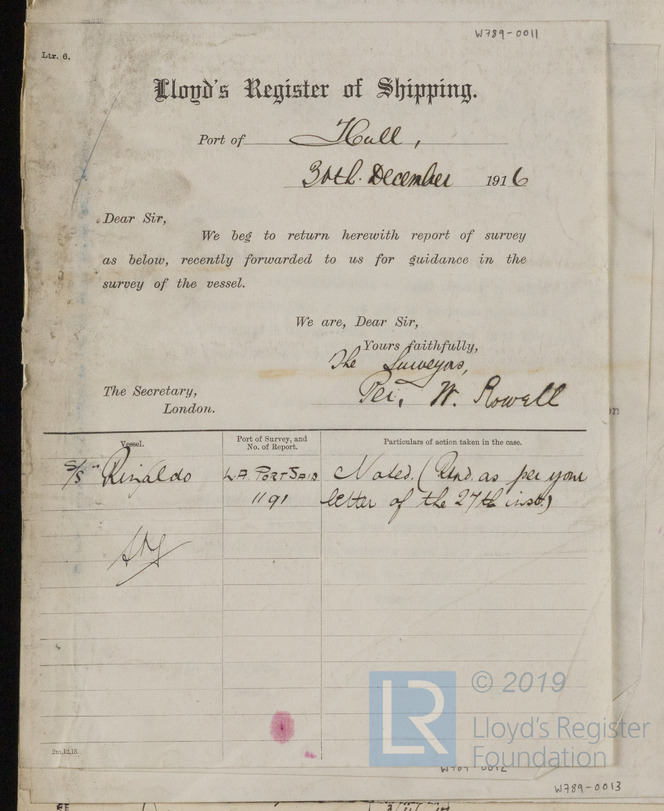 W789-0011
Ltr. 6.
Lloyd's Register of Shipping.
Port of Hull,
30th. December 1916
Dear Sir,
We beg to return herewith report of survey
as below, recently forwarded to us for guidance in the
survey of the vessel.
We are, Dear Sir,
Yours faithfully,
The Surveyors,
Per, W. Rowell
The Secretary,
London.
Vessel.
Port of Survey, and
No. of Report.
Particulars of action taken in the case.
S/S "Rinaldo
LA PORT SAID
1191
Noted. (Retd. as per your
letter of the 27th inst.)
2m,12,15.
LR
© 2019
Lloyd's Register
Foundation
W789-0012
W789-0013